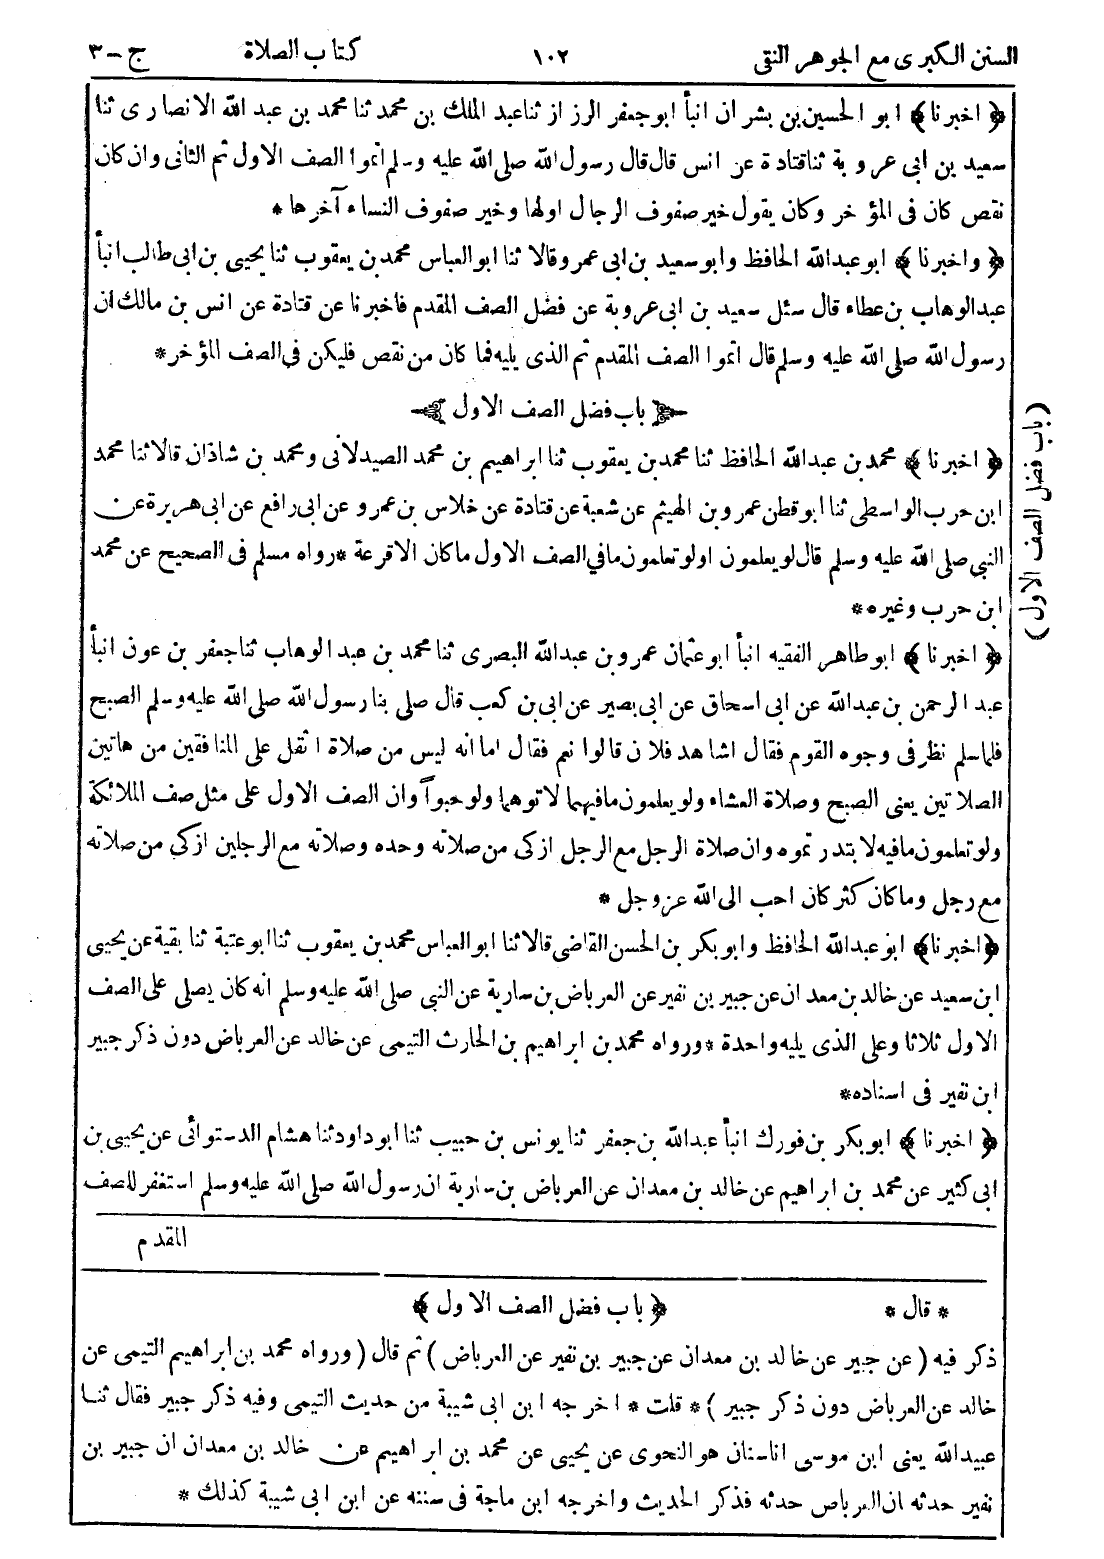 السنن الكبرى مع الجوهر النقى ١٠٢ كتاب الصلاة ج - ٣
﴿ اخبرنا ﴾ ابو الحسين بن بشران انبأ ابو جعفر الرزاز ثنا عبد الملك بن محمد ثنا محمد بن عبد الله الانصارى ثنا
سعيد بن ابى عروبة ثنا قتادة عن انس قال قال رسول الله صلى الله عليه وسلم اتموا الصف الاول ثم الثانى وان كان
نقص كان فى المؤخر وكان يقول خير صفوف الرجال اولها وخير صفوف النساء آخرها *
﴿ واخبرنا ﴾ ابو عبد الله الحافظ وابو سعيد بن ابى عمرو قالا ثنا ابو العباس محمد بن يعقوب ثنا يحيى بن ابى طالب انبأ
عبد الوهاب بن عطاء قال سئل سعيد بن ابى عروبة عن فضل الصف المقدم فاخبرنا عن قتادة عن انس بن مالك ان
رسول الله صلى الله عليه وسلم قال اتموا الصف المقدم ثم الذى يليه فما كان من نقص فليكن فى الصف المؤخر *
باب فضل الصف الاول
﴿ اخبرنا ﴾ محمد بن عبد الله الحافظ ثنا محمد بن يعقوب ثنا ابراهيم بن محمد الصيدلانى ومحمد بن شاذان قالا ثنا محمد
ابن حرب الواسطى ثنا ابو قطن عمرو بن الهيثم عن شعبة عن قتادة عن خلاس بن عمرو عن ابى رافع عن ابى هريرة عن
النبى صلى الله عليه وسلم قال لو يعلمون او لو تعلمون ما فى الصف الاول ما كان الا قرعة * رواه مسلم فى الصحيح عن محمد
ابن حرب وغيره *
(باب فضل الصف الاول)
﴿ اخبرنا ﴾ ابو طاهر الفقيه انبأ ابو عثمان عمرو بن عبد الله البصرى ثنا محمد بن عبد الوهاب ثنا جعفر بن عون انبأ
عبد الرحمن بن عبد الله عن ابى اسحاق عن ابى بصير عن ابى بن كعب قال صلى بنا رسول الله صلى الله عليه وسلم الصبح
فلما سلم نظر فى وجوه القوم فقال اشاهد فلان قالوا نعم فقال اما انه ليس من صلاة اثقل على المنافقين من هاتين
الصلاتين يعنى الصبح وصلاة العشاء ولو يعلمون ما فيهما لاتوهما ولو حبوا وان الصف الاول على مثل صف الملائكة
ولو تعلمون ما فيه لابتدرتموه وان صلاة الرجل مع الرجل ازكى من صلاته وحده وصلاته مع الرجلين ازكى من صلاته
مع رجل وما كان كثر كان احب الى الله عز وجل *
﴿ اخبرنا ﴾ ابو عبد الله الحافظ وابو بكر بن الحسن القاضى قالا ثنا ابو العباس محمد بن يعقوب ثنا ابو عتبة ثنا بقية عن يحيى
ابن سعيد عن خالد بن معدان عن جبير بن نفير عن العرباض بن سارية عن النبى صلى الله عليه وسلم انه كان يصلى على الصف
الاول ثلاثا وعلى الذى يليه واحدة * ورواه محمد بن ابراهيم بن الحارث التيمى عن خالد عن العرباض دون ذكر جبير
ابن نفير فى اسناده *
﴿ اخبرنا ﴾ ابو بكر بن فورك انبأ عبد الله بن جعفر ثنا يونس بن حبيب ثنا ابو داود ثنا هشام الدستوائى عن يحيى بن
ابى كثير عن محمد بن ابراهيم عن خالد بن معدان عن العرباض بن سارية ان رسول الله صلى الله عليه وسلم استغفر للصف
المقدم
* قال * ﴿ باب فضل الصف الاول ﴾
ذكر فيه ( عن جبير عن خالد بن معدان عن جبير بن نفير عن العرباض ) ثم قال ( ورواه محمد بن ابراهيم التيمى عن
خالد عن العرباض دون ذكر جبير ) * قلت * اخرجه ابن ابى شيبة من حديث التيمى وفيه ذكر جبير فقال ثنا
عبيد الله يعنى ابن موسى انا سنان هو النحوى عن يحيى عن محمد بن ابراهيم عن خالد بن معدان ان جبير بن
نفير حدثه ان العرباض حدثه فذكر الحديث واخرجه ابن ماجة فى سننه عن ابن ابى شيبة كذلك *